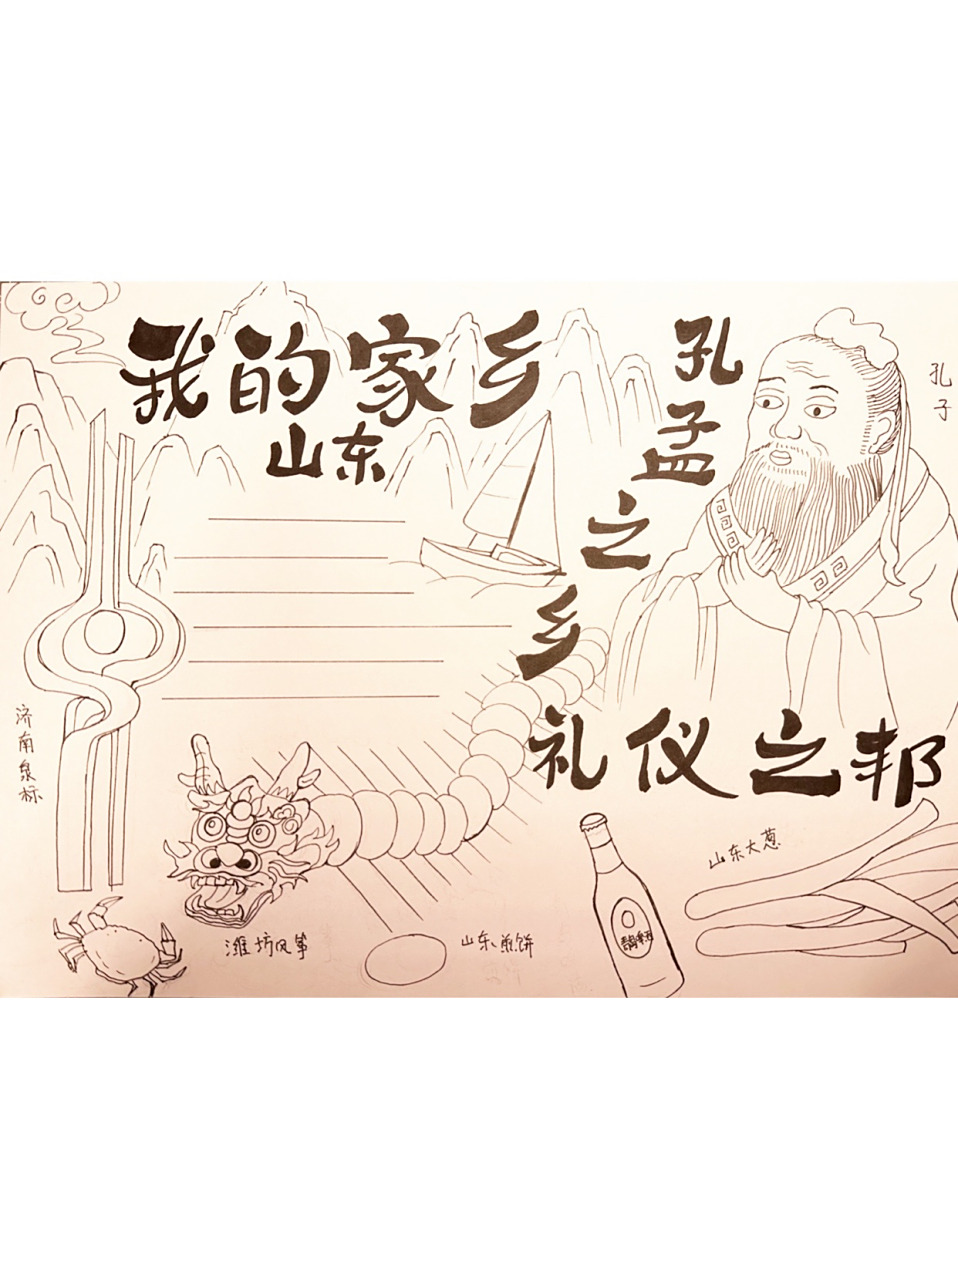 我的家乡
山东
孔孟之乡
礼仪之邦
孔子
济南泉标
潍坊风筝
山东煎饼
山东大葱